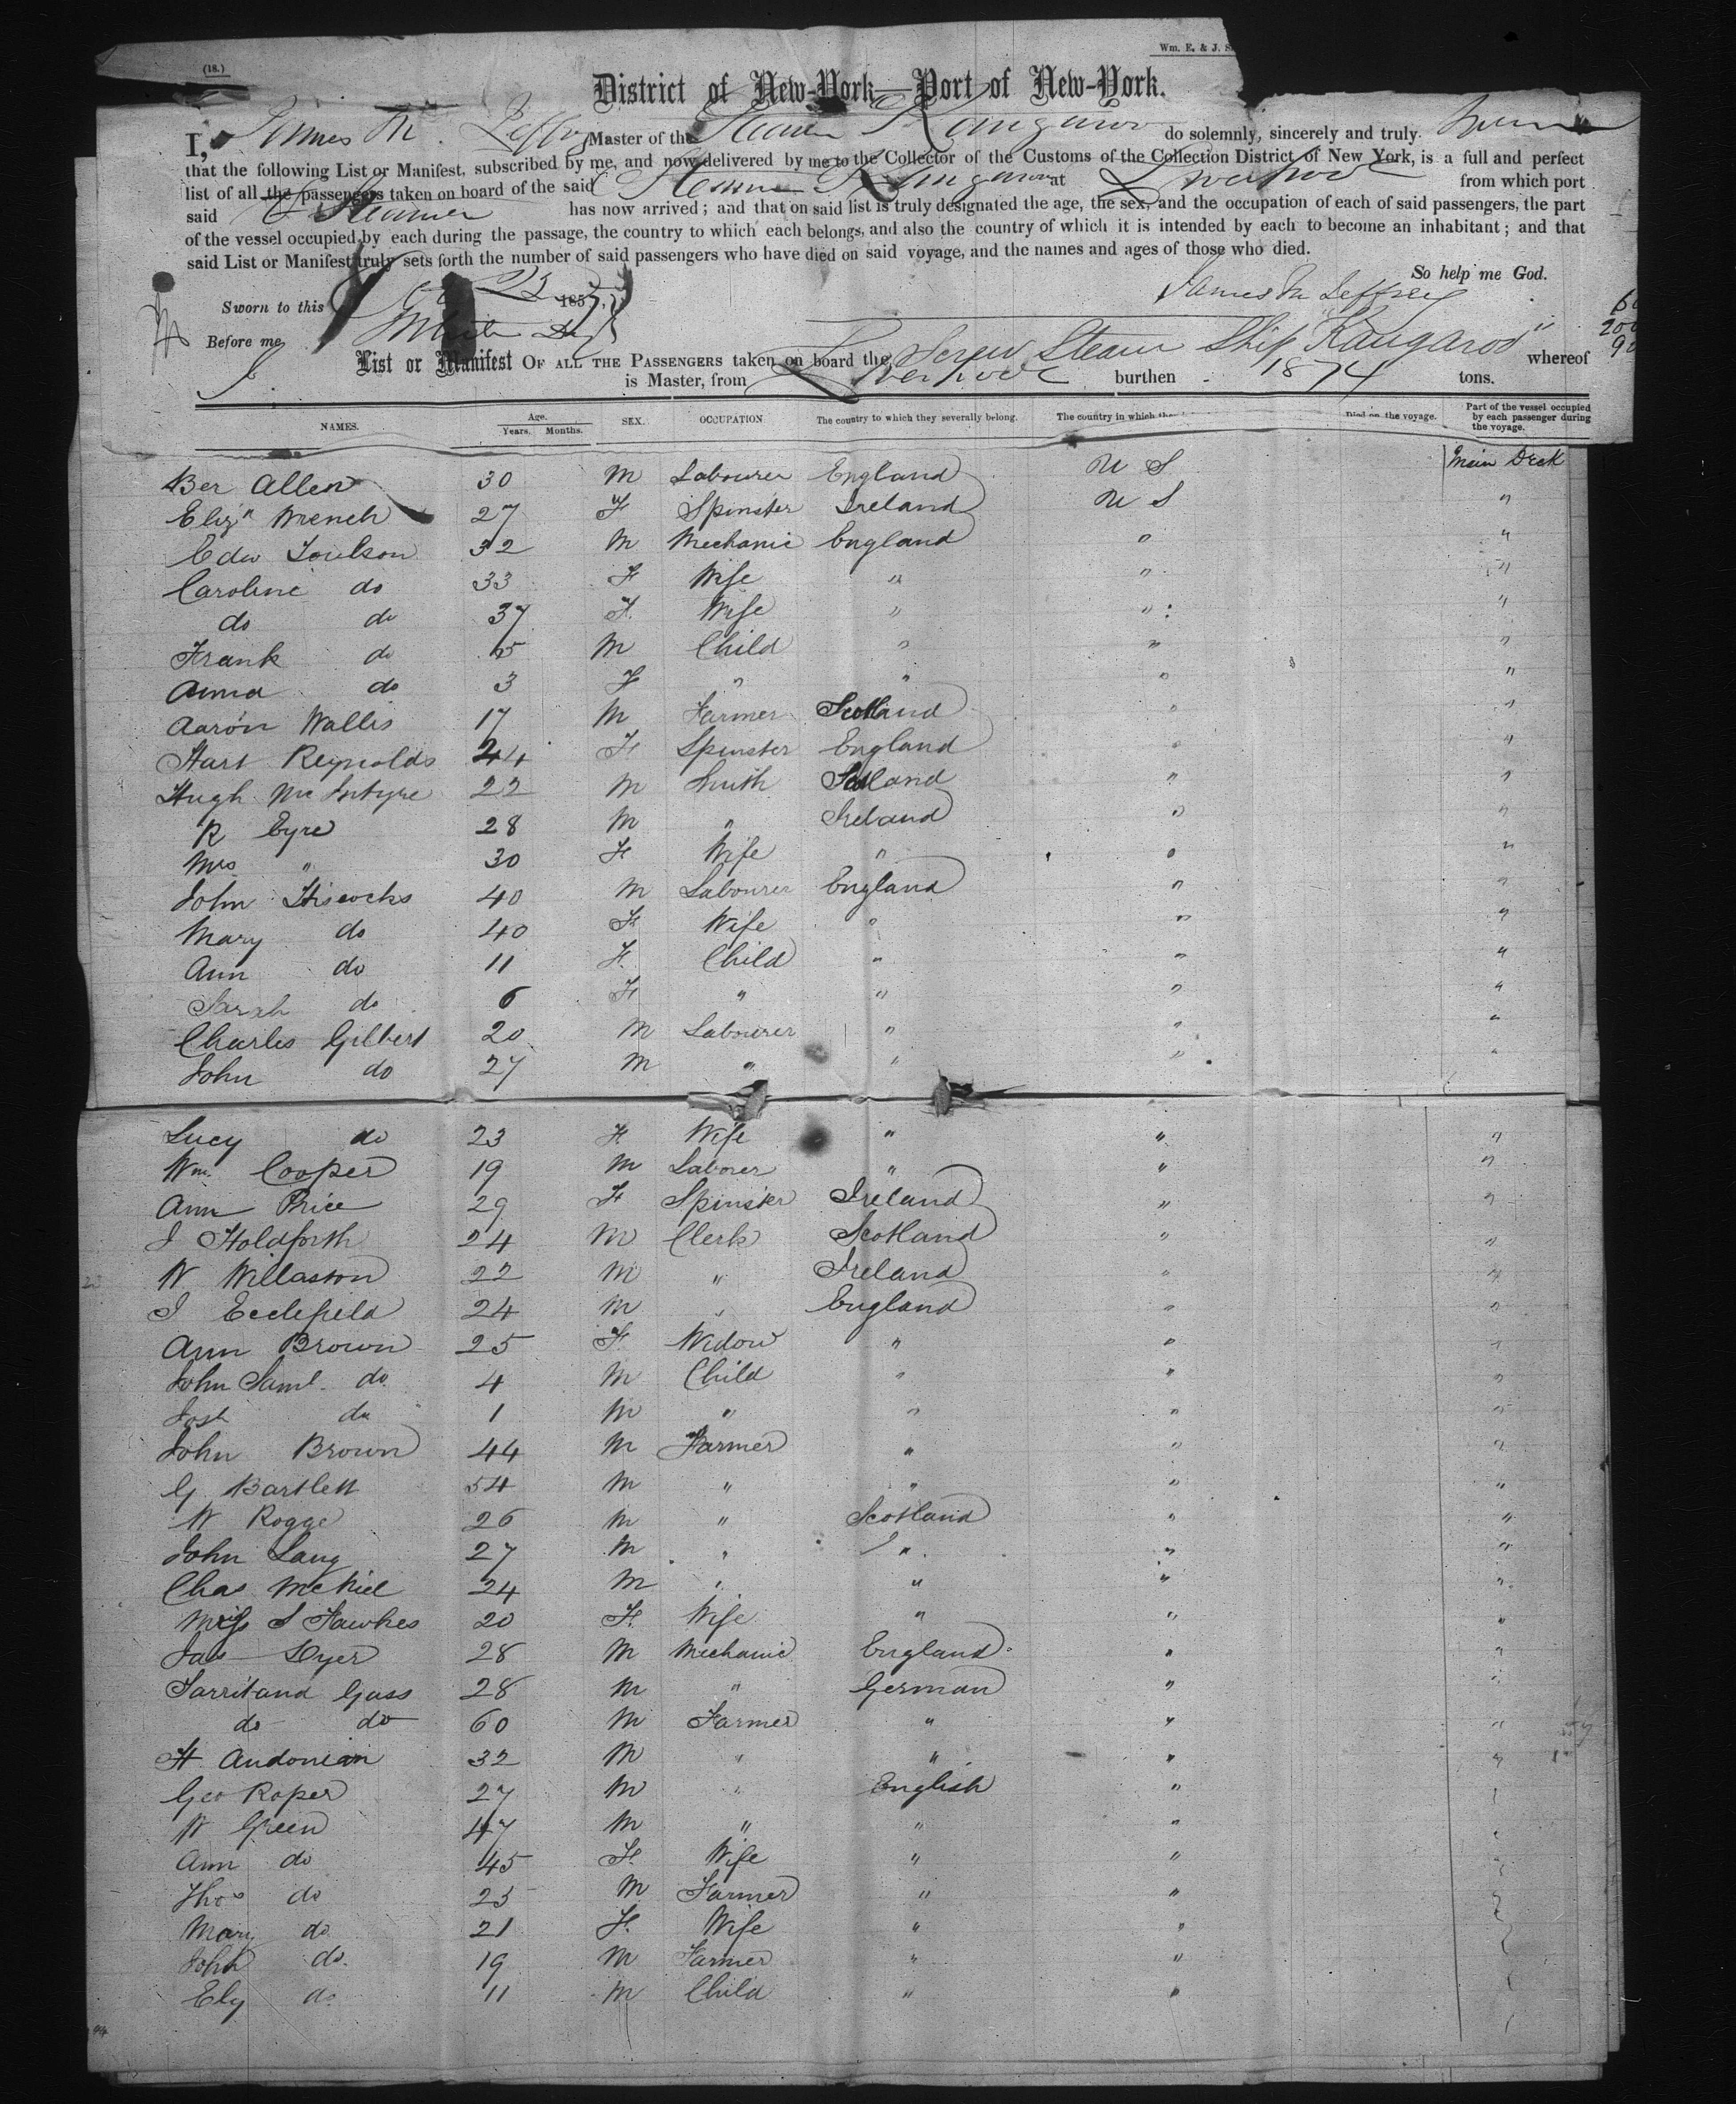 (18.)
Wm. E. & J. S
District of New-York—Port of New-York.
I, James M. Jeffrey Master of the Steamer Kangaroo do solemnly, sincerely and truly
that the following List or Manifest, subscribed by me, and now delivered by me to the Collector of the Customs of the Collection District of New York, is a full and perfect
list of all the passengers taken on board of the said Steamer Kangaroo at Liverpool from which port
said Steamer has now arrived; and that on said list is truly designated the age, the sex, and the occupation of each of said passengers, the part
of the vessel occupied by each during the passage, the country to which each belongs, and also the country of which it is intended by each to become an inhabitant; and that
said List or Manifest truly sets forth the number of said passengers who have died on said voyage, and the names and ages of those who died.
So help me God.
Sworn to this 185
James M Jeffrey
Before me
List or Manifest OF ALL THE PASSENGERS taken on board the Screw Steam Ship "Kangaroo" whereof
is Master, from Liverpool burthen 1874 tons.
NAMES. Age. Years. Months. SEX. OCCUPATION The country to which they severally belong. The country in which Died on the voyage. Part of the vessel occupied by each passenger during the voyage.
Ber Allen 30 M Labourer England U S Main Deck
Eliz" Wrench 27 F Spinster Ireland U S "
Edw Toulson 32 M Mechanic England " "
Caroline do 33 F Wife " " "
do do 37 F. Wife " " "
Frank do 5 M Child " " "
Anna do 3 F " " " "
Aaron Wallis 17 M Farmer Scotland " "
Hart Reynolds 24 F Spinster England " "
Hugh McIntyre 22 M Smith Scotland " "
R Eyre 28 M " Ireland " "
Mrs " 30 F Wife " " "
John Hiscocks 40 M Labourer England " "
Mary do 40 F Wife " " "
Ann do 11 F. Child " " "
Sarah do 6 F " " " "
Charles Gilbert 20 M Labourer " " "
John do 27 M " " " "
Lucy do 23 F. Wife " " "
Wm. Cooper 19 M Laborer " " "
Ann Price 29 F Spinster Ireland " "
J Holdforth 24 M Clerk Scotland " "
W Willaston 22 M " Ireland " "
J Ecclefield 24 M " England " "
Ann Brown 25 F. Widow " " "
John Saml. do 4 M Child " " "
Josh do 1 M " " " "
John Brown 44 M Farmer " " "
G Bartlett 54 M " " " "
W Rogge 26 M " Scotland " "
John Lang 27 M " " " "
Chas McNiel 24 M " " " "
Miss S Fawkes 20 F. Wife " " "
Jas Dyer 28 M Mechanic England " "
Farritand Gass 28 M " German " "
do do 60 M Farmer " " "
H Andonian 32 M " " " "
Geo Roper 27 M " English "
W Green 47 M " " "
Ann do 45 F. Wife " "
Thos do 23 M Farmer " "
Mary do 21 F. Wife " "
John do. 19 M Farmer " "
Ely do 11 M Child " "